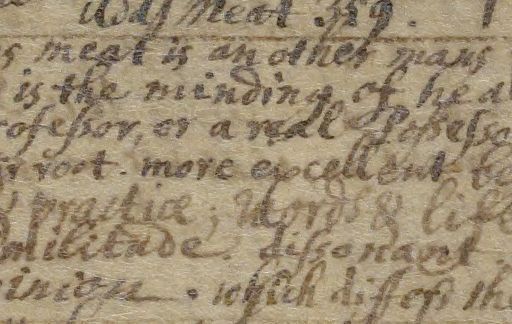 was meat 359.
s meat is another mans
is the minding of he a
rofessor, or a real Possesso
r root. more excellent be
practice; words & life
militude. dissonant.
inion. which differs the